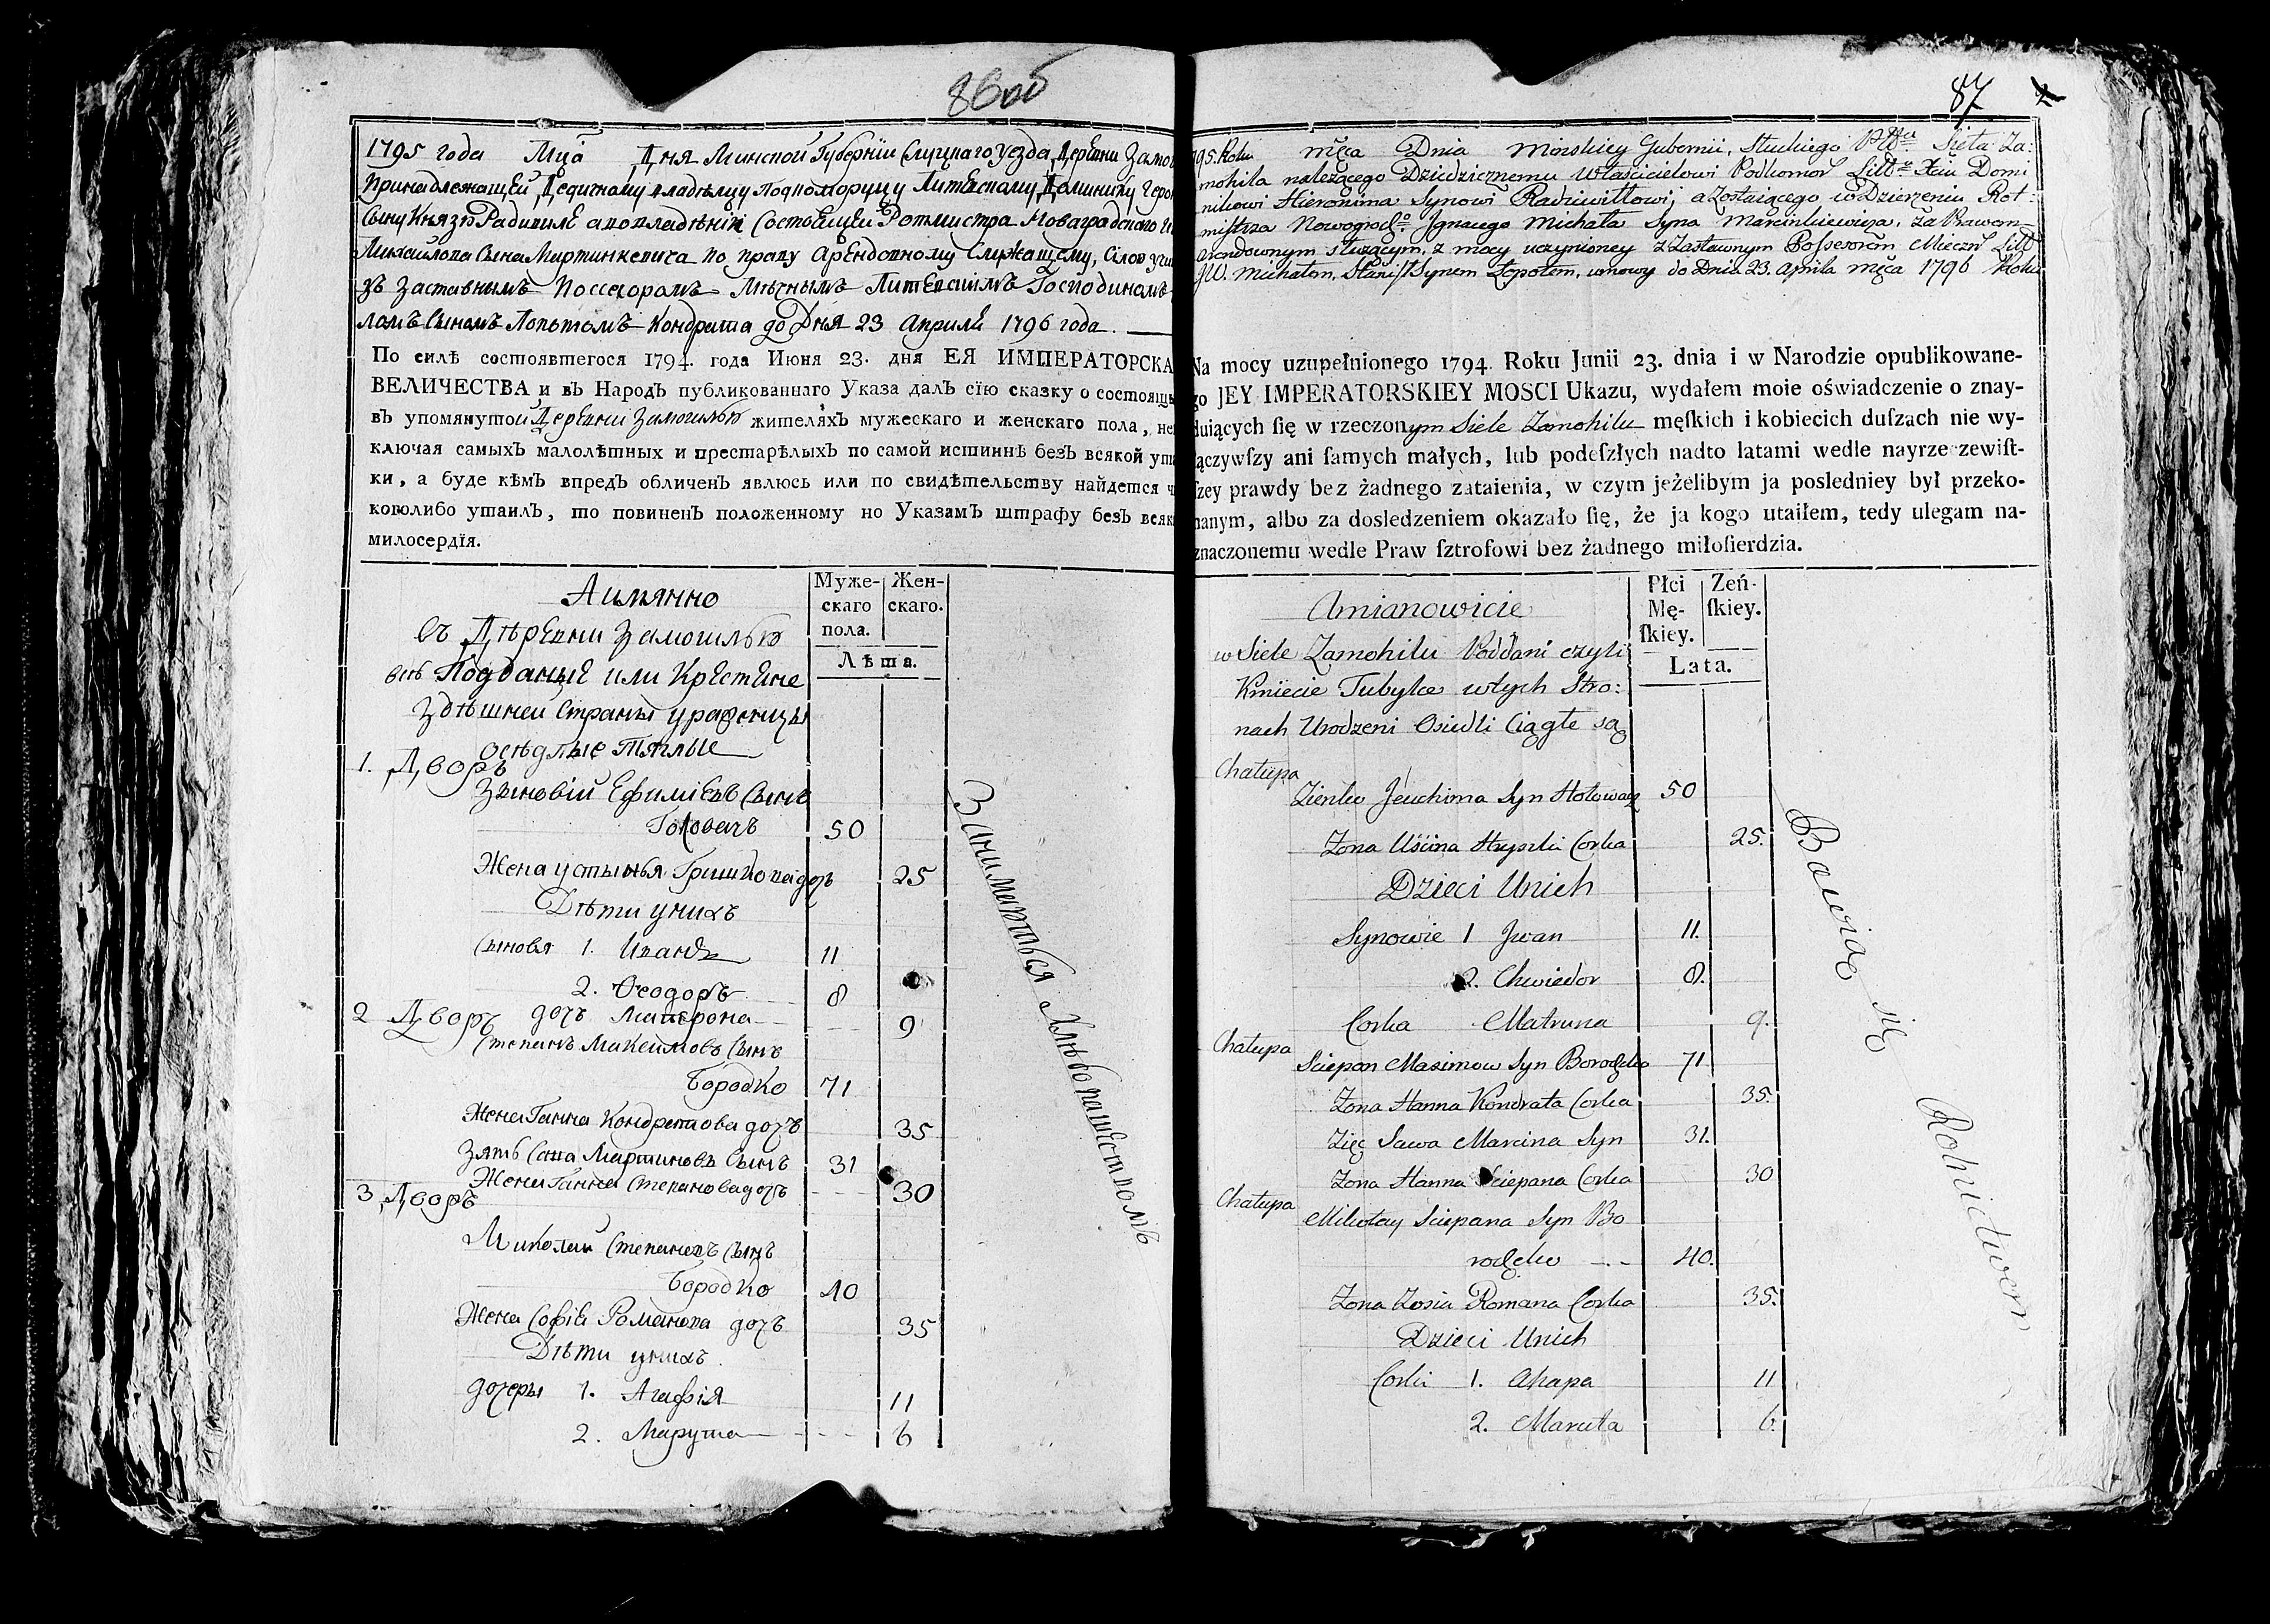 86об
1795 года Мца Дня Минской Губернїи Слуцкаго Уезда Деревни
Принадлежащей Дедичному владельцу Подкоморyему Литевскому Доминику
Сыну Князю Радивиле а во владѣнїи Состоящеи Ротмистра Новаградскаго
Михаилова Сына Мартинкевича по праву Арендовному Служащему,
зъ заставнымъ Поссесоромъ Мечнымъ Литевскимъ Господиномъ
ломъ Сыномъ Лопотомъ Контракта до Дня 23 Априля 1796 года.
По силѣ состоявшегося 1794. года Июня 23. дня ЕЯ ИМПЕРАТОРСКА
ВЕЛИЧЕСТВА и въ Народъ публикованнаго Указа далъ сїю сказку о состоящ
въ упомянутой Деревни Замогилью жителяхъ мужескаго и женскаго пола, не
ключая самыхъ малолѣтныхъ и престарѣлыхъ по самой истиннѣ безъ всякой ута
ки, а буде кѣмъ впредъ обличенъ явлюсь или по свидѣтельству найдется ч
коголибо утаилъ, то повиненъ положенному по Указамъ штрафу безъ всяк
милосердїя.
Аимянно
Муже-
скаго
пола.
Жен-
скаго.
Лѣта.
въ Деревни Замогилью
Подданые или Крестяне
Здѣшнеи Страны уроженцы
осѣдлые Тяглые
1. Дворъ
Зѣновїй Ефимїевъ Сынъ
Головачъ 50
Жена Устынья Гришкова дочь 25
Дѣти унихъ
Сыновя 1. Иванъ 11
2. Ѳеодоръ 8
дочь Матрона 9
2 Дворъ
Степанъ Максимовъ Сынъ
Бородко 71
Жена Ганна Кондратова дочь 35
Зять Сава Мартиновъ Сынъ 31
Жена Ганна Степанова дочь 30
3 Дворъ
Миколай Степановъ Сынъ
Бородко 40
Жена Софїя Романова дочь 35
Дѣти унихъ
дочеры 1. Агафїя 11
2. Марута 6
Занимаються хлѣбопашеством
87
795. Roku męca Dnia Minskiey Gubernii, Słuckiego Pttu Sieła Za:
mohila należącego Dziedzicznemu Właścicielowi Podkomor Litt Xciu Domi
nikowi Hieronima Synowi Radziwiłłowi, a Zostaiącego w Dzierzeniu Rot:
mistrza Nowogrodo Jgnacego Michała Syna Marcinkiewicza, za Prawem
arendownym służącym, z mocy uczynioney z Zastawnym Possesorem Mieczn Litt
JW. Michałem, Stani Synem Łopotem, umowy do Dnia 23. Aprila męca 1796 Roku
Na mocy uzupełnionego 1794. Roku Junii 23. dnia i w Narodzie opublikowane-
go JEY IMPERATORSKIEY MOSCI Ukazu, wydałem moie oświadczenie o znay-
duiących ſię w rzeczonym Siele Zamohilu męſkich i kobiecich duſzach nie wy-
ączywſzy ani ſamych małych, lub podeſzłych nadto latami wedle nayrzeczewiſt-
ſzey prawdy bez żadnego zataienia, w czym jeżelibym ja posledniey był przeko-
nanym, albo za dosledzeniem okazało ſię, że ja kogo utaiłem, tedy ulegam na-
znaczonemu wedle Praw ſztrofowi bez żadnego miłoſierdzia.
Amianowicie
Płci
Mę-
ſkiey.
Zeń-
ſkiey.
Lata.
w Siele Zamohilu Poddani czyli
Kmiecie Tubylce wtych Stro:
nach Urodzeni Osiedli Ciągłe są
Chałupa
Zienko Jeuchima Syn Hołowacz 50
Zona Uścina Hryszki Corka 25.
Dzieci Unich
Synowie 1 Jwan 11.
2. Chwiedor 8.
Corka Matruna 9.
Chałupa
Sciepan Maximow Syn Borodzko 71
Zona Hanna Kondrata Corka 35.
Zięć Sawa Marcina Syn 31.
Zona Hanna Sciepana Corka 30
Chałupa
Mikołay Sciepana Syn Bo
rodzko 40.
Zona Zosia Romana Corka 35.
Dzieci Unich
Corki 1. Ahapa 11
2. Maruta 6.
Bawią się Rolnictwem